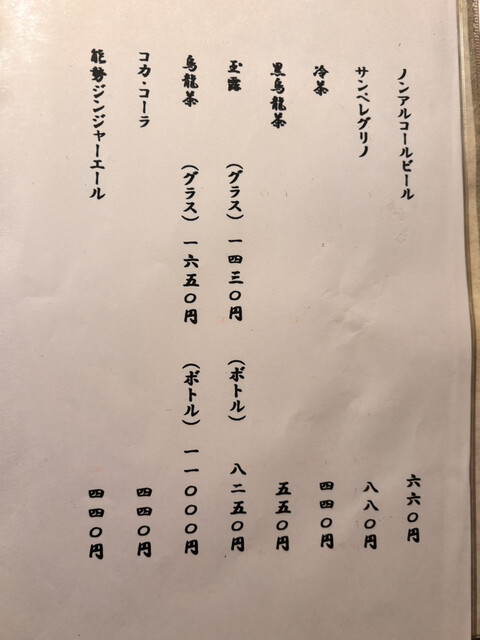 ノンアルコールビール 六六〇円
サンペレグリノ 八八〇円
冷茶 四四〇円
黒烏龍茶 五五〇円
玉露 (グラス) 一四三〇円 (ボトル) 八二五〇円
烏龍茶 (グラス) 一六五〇円 (ボトル) 一一〇〇〇円
コカ・コーラ 四四〇円
能勢ジンジャーエール 四四〇円